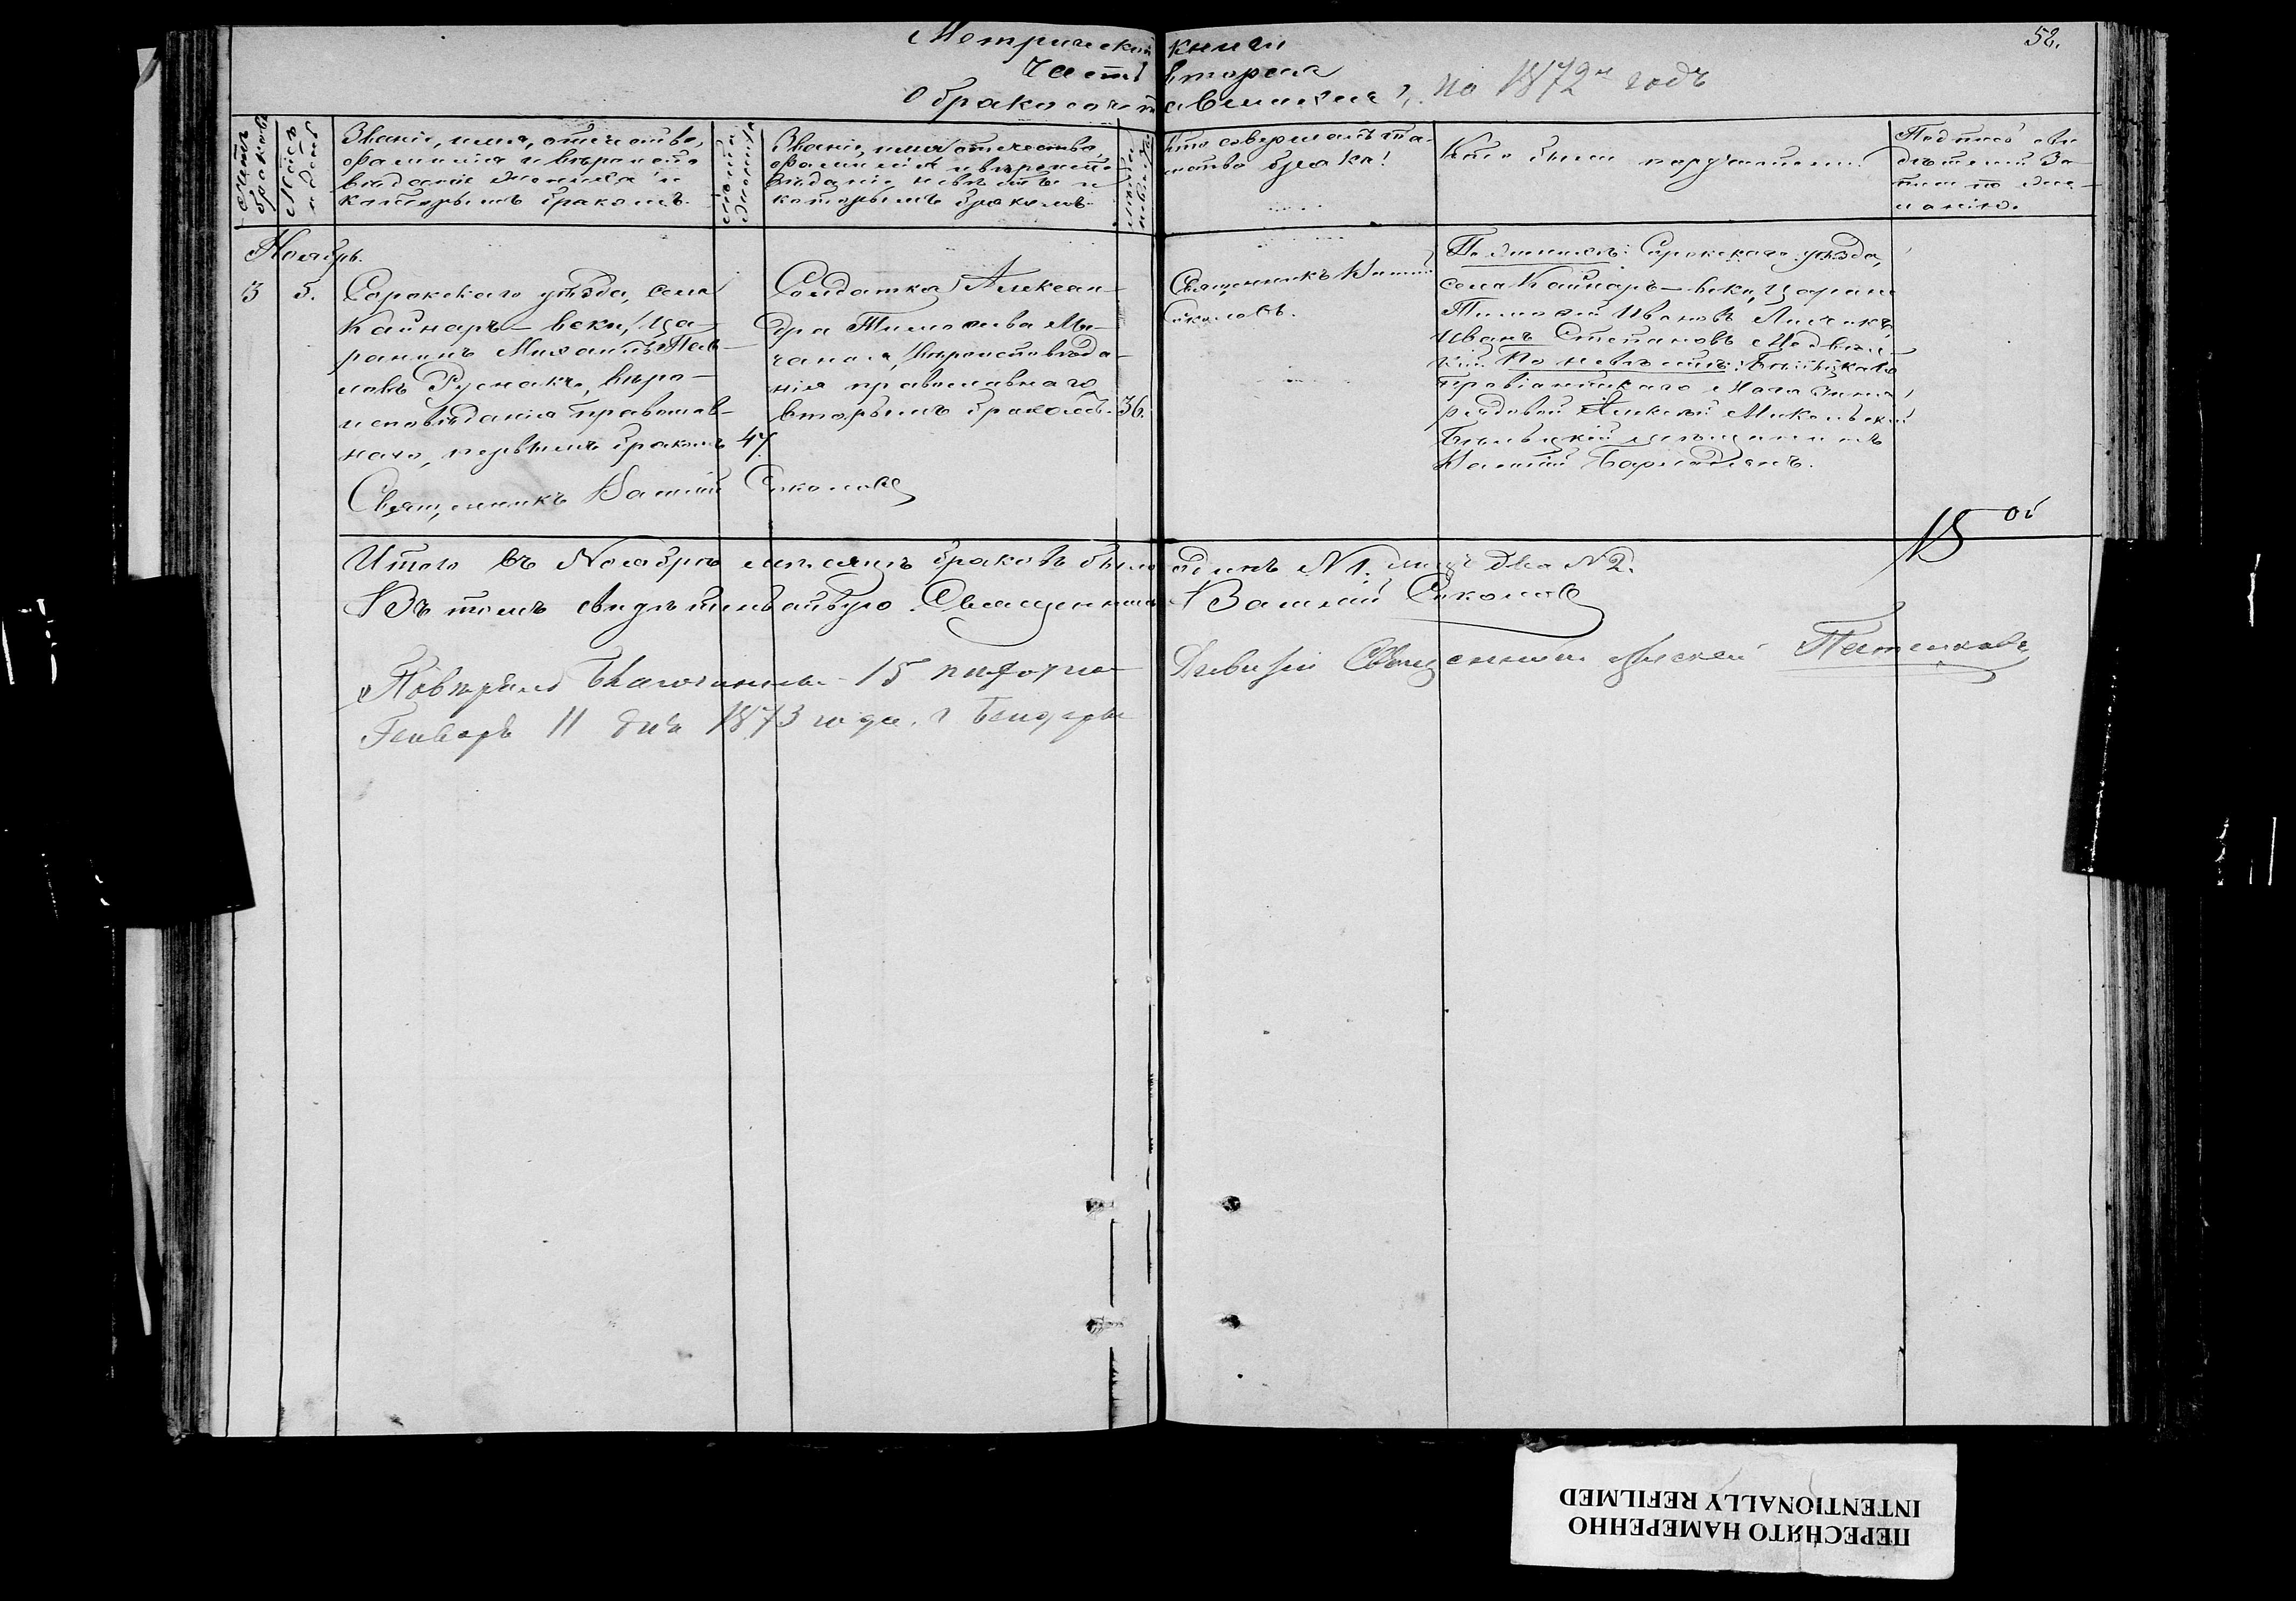 Метрической книги
58.
часть вторая
О бракосочетавшихся, на 1872й годъ
Счетъ браковъ
Мѣсяцъ и день
Званіе, имя, отчество,
фамилія и вѣроиспо-
вѣданіе жениха и
которымъ бракомъ.
Лѣта жениха
Званіе, имя, отчество
фамилія и вѣроиспо-
вѣданіе невѣсты и
которымъ бракомъ
Лѣта невѣсты
Кто совершалъ та-
инство брака!
Кто были поручители.
Подпись сви
дѣтелей за-
писи по же-
ланію.
Ноябрь.
3
5.
Сорокскаго уѣзда, села
Кайнаръ-веки, ца-
ранинъ Михаилъ Пав-
ловъ Руснакъ, вѣро-
исповѣданія православ-
наго, первымъ бракомъ
47.
Священникъ Василій Соколовъ
Солдатка Алексан-
дра Тимофиева
вѣроисповѣда-
нія православнаго
вторымъ бракомъ.
36.
Священникъ Василій
Соколовъ.
По женихѣ: Сорокскаго уѣзда,
села Кайнаръ-веки, царане
Тимофей Ивановъ
Иванъ Степановъ
По невѣстѣ: Бѣльцкаго
провіантскаго магазина
рядовой Алексѣй
Бѣльцкій мещанинъ
Василій
15
Итого въ Ноябрѣ мѣсяцѣ браковъ было одинъ N 1. лицъ два N 2.
Въ томъ свидѣтельствую Священникъ Василій Соколовъ
Повѣрялъ Благочинный 15 пѣхотной Дивизіи Священникъ Алексей
Генваря 11 дня 1873 года. г Бендеры
ПЕРЕСНЯТО НАМЕРЕННО
INTENTIONALLY REFILMED